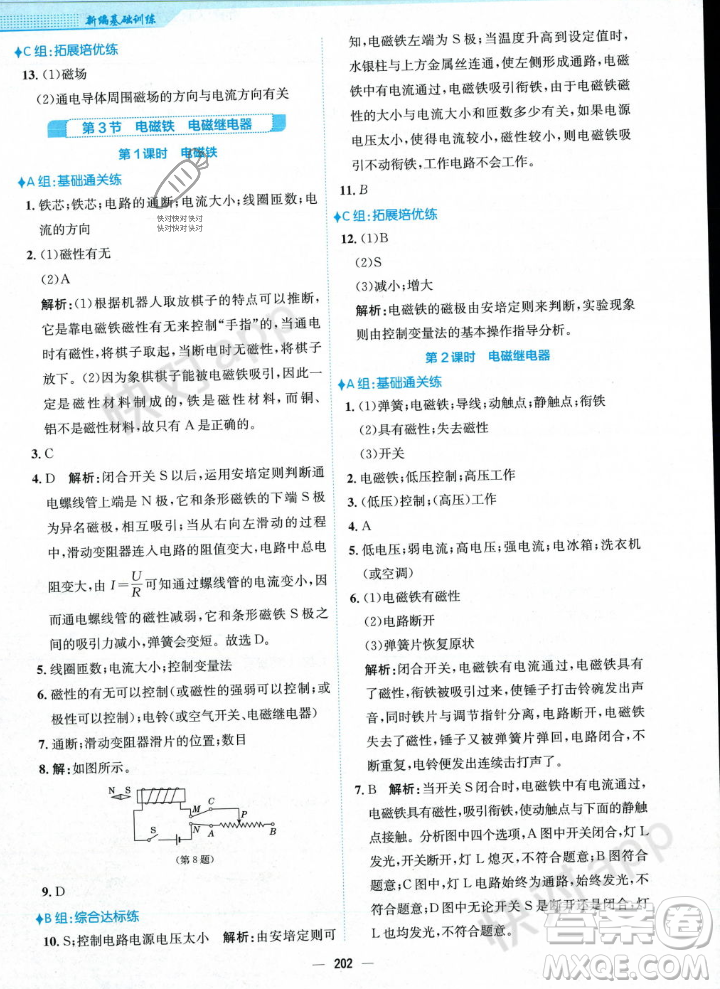 新编基础训练
C组:拓展培优练
13. (1)磁场
(2)通电导体周围磁场的方向与电流方向有关
第3节 电磁铁 电磁继电器
第1课时 电磁铁
A组:基础通关练
1. 铁芯;铁芯;电路的通断;电流大小;线圈匝数;电
流的方向
快对快对快对
快对快对快对
2. (1)磁性有无
(2)A
解析:(1)根据机器人取放棋子的特点可以推断,
它是靠电磁铁磁性有无来控制“手指”的,当通电
时有磁性,将棋子取走,当断电时无磁性,将棋子
放下。(2)因为象棋棋子能被电磁铁吸引,含有
磁性材料制成的,铁是磁性材料,而铜、
铝不是磁性材料,故A是正确的。
3. C
4. D 解析:闭合开关S以后,运用安培定则判断通
电螺线管上端是N极,它和条形磁铁的下端S极
为异名磁极,相互吸引;当从右向左滑动的过程
中,滑动变阻器连入电路的阻值变大,电路中总电
阻变大,由I=U/R可知通过螺线管的电流变小,
因而通电螺线管的磁性减弱,它和条形磁铁S极
间的吸引力会变短。故选D。
5. 线圈匝数;电流大小;控制变量法
6. 磁性的有无可以控制(或磁性的强弱可以控制,或
极性可以控制);电铃(或空气开关、电磁继电器)
7. 通断;滑动变阻器滑片的位置;数目
8. 解:如图所示。
N S
M C
P
S N A B
(第8题)
9. D
B组:综合达标练
10. S;控制电路电源电压太小 解析:由安培定则可
知,电磁铁左端为S极;当温度升高超过限定值时,
水银柱与上方金属丝连通,使左侧形成通路,电磁
铁中有电流通过,电磁铁吸引衔铁。因为电磁铁
磁性的大小和电流大小和匝数多少有关,所以,
如果电流太小、线圈匝数太少,或者如果电源
电压太小,都会使得电磁铁磁性太小,电磁铁吸
引不动衔铁,工作电路不会工作。
11. B
C组:拓展培优练
12. (1)B
(2)S
(3)减小;增大
解析:电磁铁的磁极由安培定则来判断,实验现象
则由控制变量法的基本操作指导分析。
第2课时 电磁继电器
A组:基础通关练
1. (1)弹簧;电磁铁;导线;动触点;静触点;衔铁
(2)有电流;有磁性;失去磁性
(3)开关
2. 电磁铁;低压控制;高压工作
3. (低压)控制;(高压)工作
4. A
5. 低电压;弱电流;高电压;强电流;电冰箱;洗衣机
(或空调)
6. (1)电磁铁有磁性
(2)电路断开
(3)弹簧片恢复原状
解析:闭合开关,电磁铁有电流通过,电磁铁具有
了磁性,衔铁被吸引过来,使锤子打击铃碗发出
声音,同时铁片与调节指针分离,电路断开,电磁
铁失去磁性,锤子又被弹簧片弹开,电路闭合,不
断重复,电铃便发出连续击打声了。
7. B 解析:当开关S闭合时,电磁铁中有电流通过,
电磁铁具有磁性,吸引衔铁,使动触点与下面静触
点接触。分析图中四个选项,A图中开关闭合,灯L
发光,开关断开,灯L熄灭,不符合题意;B图中开
关闭合,灯L不发光,开关断开,灯L发光,符合题
意;C图中开关闭合,灯L发光,开关断开,灯L
发光,不符合题意;D图中开关闭合,灯L始终发
光,不符合题意。
202
快对app
快对app
快对app
答案圈